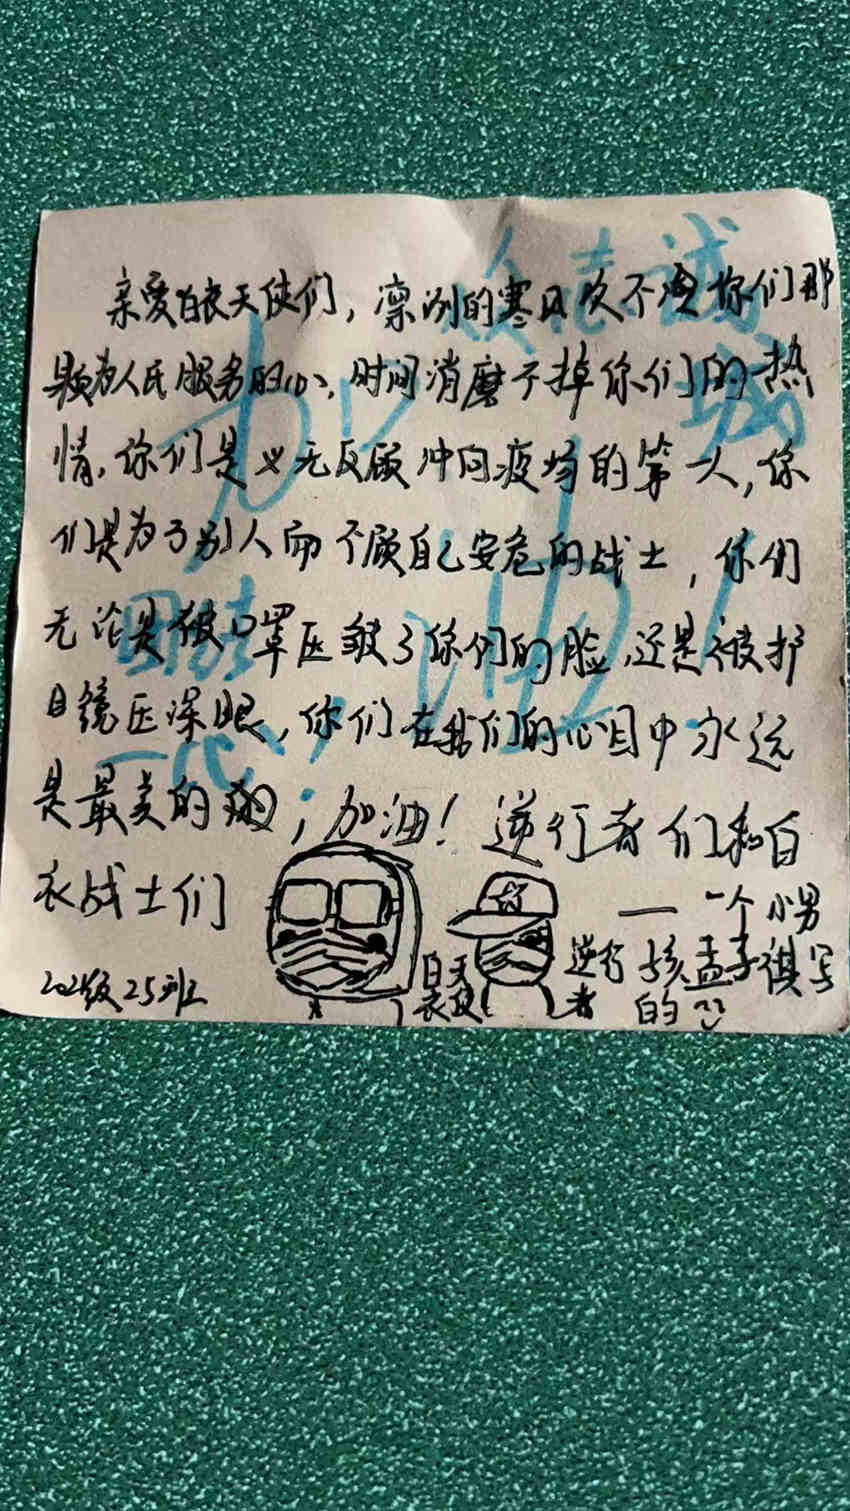 亲爱白衣天使们，凛冽的寒风吹不灭你们那
颗为人民服务的心，时间消磨不掉你们的热
情，你们是义无反顾冲向疫场的第一人，你
们是为了别人而不顾自己安危的战士，你们
无论是被口罩压皱了你们的脸，还是被护
目镜压深眼，你们在我们的心目中永远
是最美的；加油！逆行者们和白
衣战士们
——一个小男
孩孟子祺写
的
2021级25班
白衣天使
逆行者
众志成城
加油！
团结
一心，